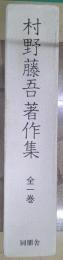 村野藤吾著作集
全一巻
同朋舎